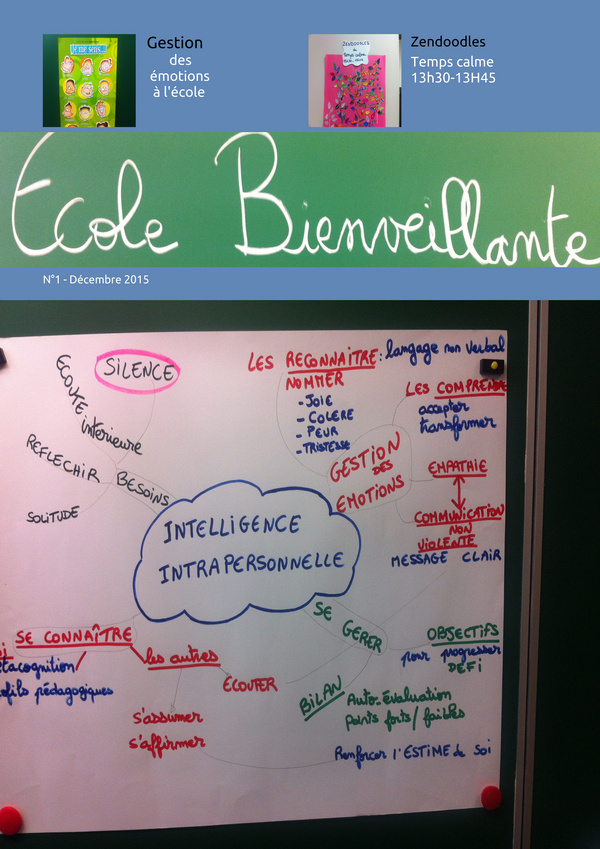 Gestion
des
émotions
à l'école
Je me sens...
Zendoodles
Temps calme
13h30-13H45
ZENDOODLES
Temps calme
École Bienveillante
N°1 - Décembre 2015
SILENCE
ECOUTE intérieure
REFLECHIR
BESOINS
SOLITUDE
LES RECONNAITRE: langage non verbal
NOMMER
- JOIE
- COLERE
- PEUR
- TRISTESSE
LES COMPRENDRE
accepter
transformer
GESTION
DES
EMOTIONS
EMPATHIE
COMMUNICATION
NON
VIOLENTE
MESSAGE CLAIR
INTELLIGENCE
INTRAPERSONNELLE
SE GERER
OBJECTIFS
pour progresser
DEFI
BILAN
Auto-évaluation
points forts/faibles
Renforcer l'ESTIME de soi
SE CONNAÎTRE
tacognition/
ofils pédagogiques
les autres
ECOUTER
s'assumer
s'affirmer